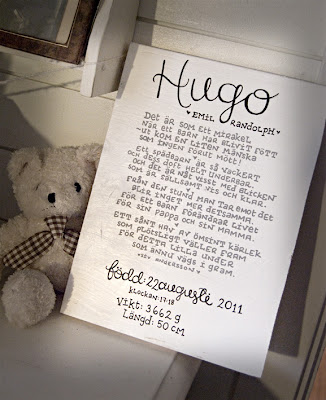 Hugo
EMIL RANDOLPH
Det är som ett mirakel
när ett barn har blivit fött
-ut kom en liten mänska
som ingen förut mött!
Ett spädbarn är så vackert
och dess doft helt underbar.
Och det är nåt visst med blicken
som är sällsamt vis och klar.
Från den stund man tar emot det
blir inget mer detsamma.
För ett barn förändrar livet
för sin pappa och sin mamma.
Ett sånt hav av ömsint kärlek
som plötsligt väller fram
för detta lilla under
som ännu vägs i gram.
ANDERSSON
född: 22 augusti 2011
klockan: 17:18
Vikt: 3662 g
Längd: 50 cm